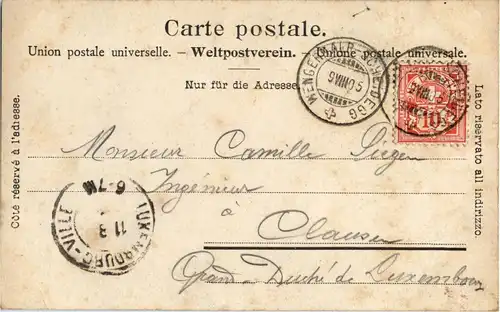 Carte postale.
Union postale universelle. – Weltpostverein. – Unione postale universale.
Nur für die Adresse
WENGERNALP-SCHEIDEGG
9 VIII 05
10
Côté réservé à l'adresse.
Lato riservato all indirizzo.
Monsieur Camille Siegen
Ingénieur
à
Clausen
Grand-Duché de Luxembourg
LUXEMBOURG-VILLE
6-7